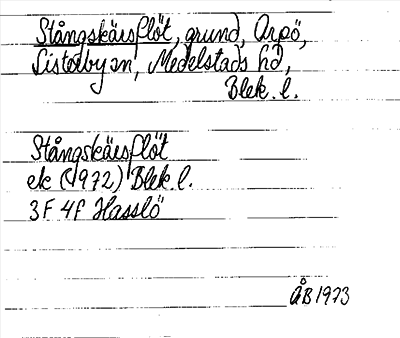 Stångskärsflöt, grund, Arpö,
Listerby sn, Medelstads hd,
Blek. l.
Stångskärsflöt
ek (1972) Blek l.
3F 4f Hasslö
ÅB 1973